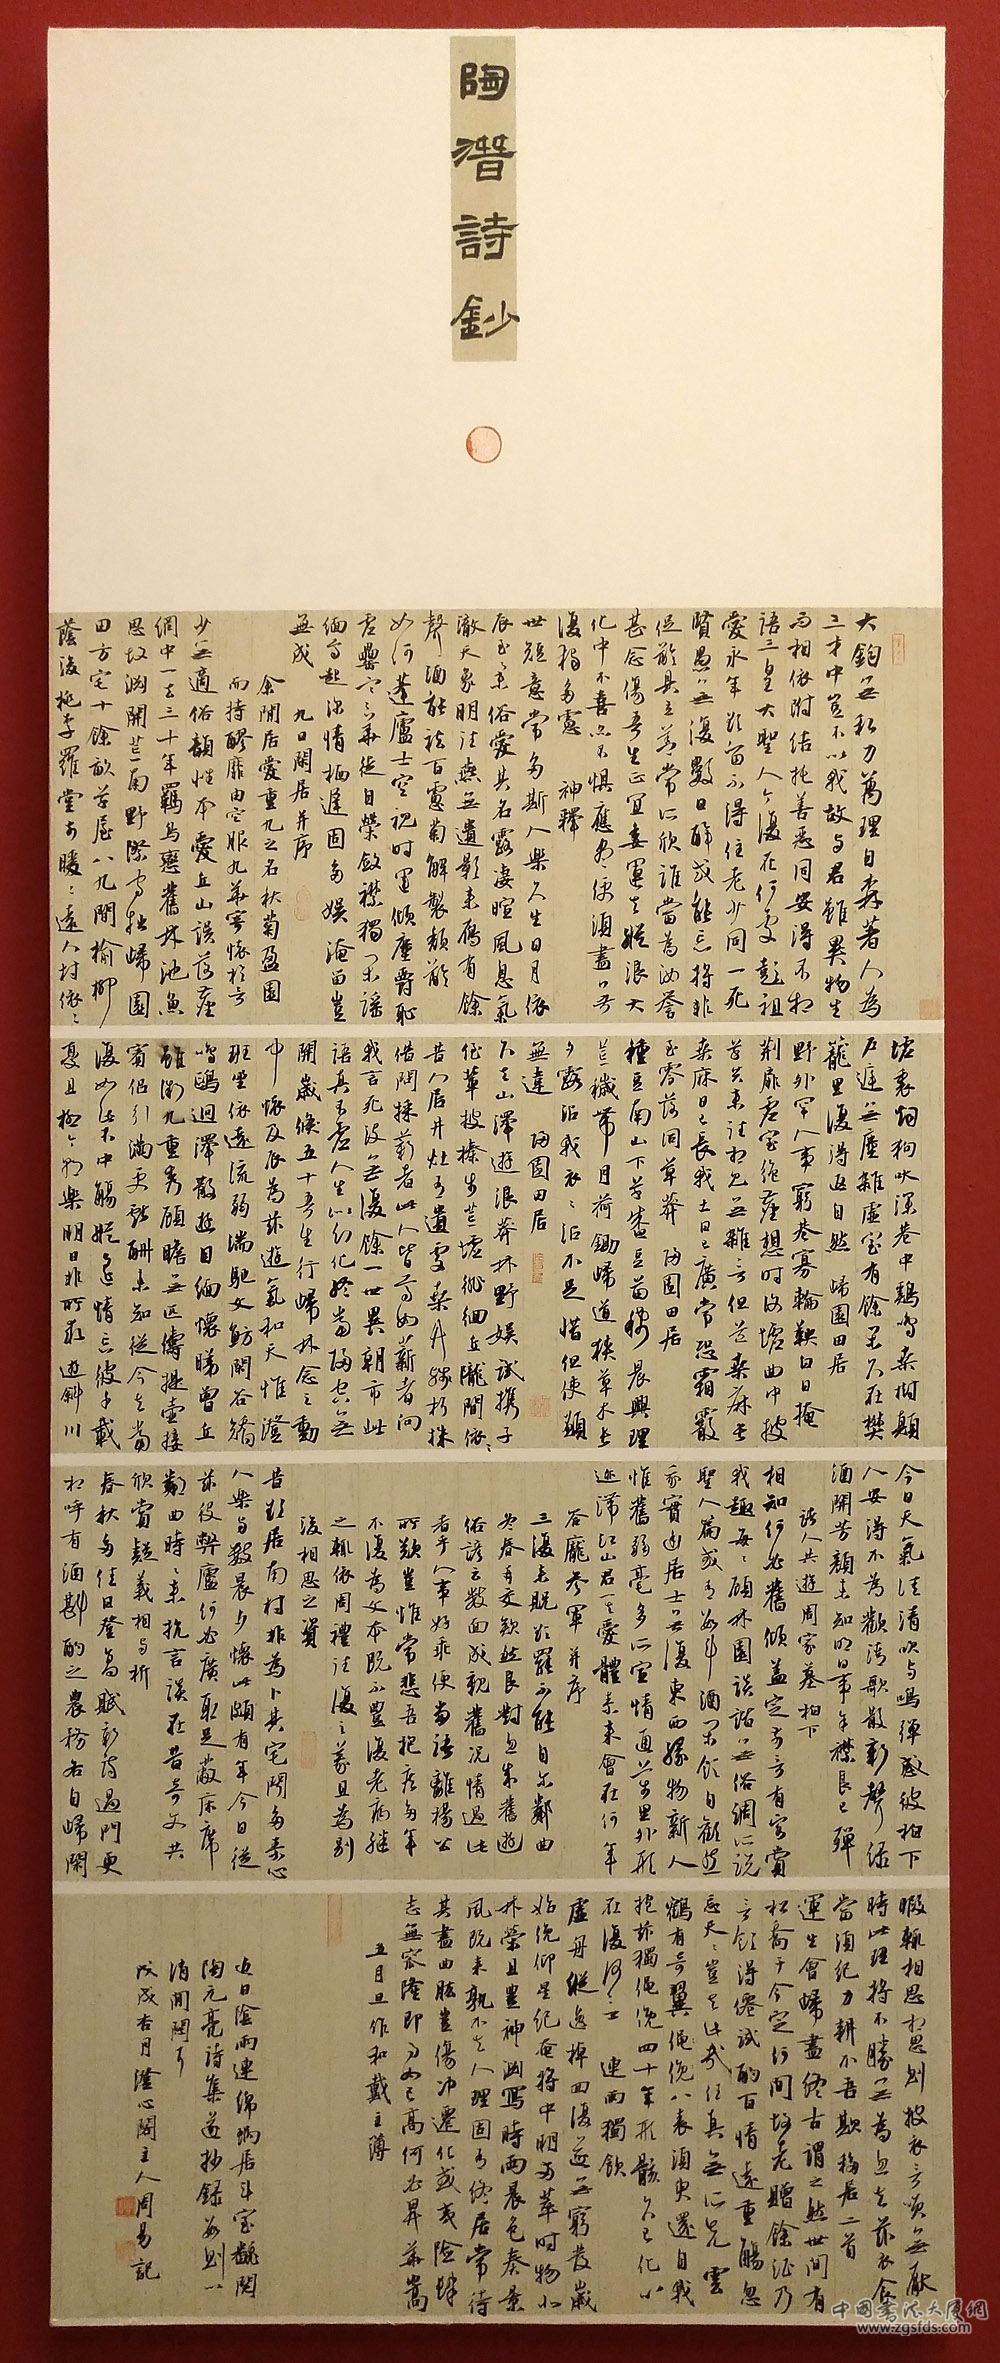 陶潛詩鈔
大鈞無私力萬理自森著人為
三才中豈不以我故與君雖異物生
而相依附結托善惡同安得不相
語三皇大聖人今復在何處彭祖
愛永年欲留不得住老少同一死
賢愚無復數日醉或能忘將非
促齡具立善常所欣誰當為汝譽
甚念傷吾生正宜委運去縱浪大
化中不喜亦不懼應盡便須盡無
復獨多慮 神釋
世短意常多斯人樂久生日月依
辰至舉俗愛其名露淒暄風息氣
澈天象明往燕無遺影來雁有餘
聲酒能祛百慮菊解製頹齡
如何蓬廬士空視時運傾塵爵恥
虛罍寒華徒自榮斂襟獨閑謠
緬焉起深情栖遲固多娛淹留豈
無成 九日閑居并序
余閑居愛重九之名秋菊盈園
而持醪靡由空服九華寄懷於言
少無適俗韻性本愛丘山誤落塵
網中一去三十年羈鳥戀舊林池魚
思故淵開荒南野際守拙歸園
田方宅十餘畝草屋八九間榆柳
蔭後檐桃李羅堂前曖曖遠人村依依
墟裏煙狗吠深巷中鷄鳴桑樹顛
戶庭無塵雜虛室有餘閑久在樊
籠里復得返自然 歸園田居
野外罕人事窮巷寡輪鞅白日掩
荊扉虛室絕塵想時復墟曲中披
草共來往相見無雜言但道桑麻長
桑麻日已長我土日已廣常恐霜霰
至零落同草莽 歸園田居
種豆南山下草盛豆苗稀晨興理
荒穢帶月荷鋤歸道狹草木長
夕露沾我衣衣沾不足惜但使願
無違 歸園田居
久去山澤遊浪莽林野娛試攜子
侄輩披榛步荒墟徘徊丘隴間依依
昔人居井灶有遺處桑竹殘朽株
借問採薪者此人皆焉如薪者向
我言死沒無復餘一世異朝市此
語真不虛人生似幻化終當歸空無
開歲倏五十吾生行歸休念之動
中懷及辰為茲遊氣和天惟澄
班坐依遠流弱湍馳文魴閑谷矯
鳴鷗迥澤散遊目緬懷睇曾丘
雖微九重秀顧瞻無匹儔提壺接
賓侶引滿更獻酬未知從今去當
復如此不中觴縱遙情忘彼千載
憂且極今朝樂明日非所求 遊斜川
今日天氣佳清吹與鳴彈感彼柏下
人安得不為歡清歌散新聲綠
酒開芳顏未知明日事余襟良已殫
諸人共遊周家墓柏下
相知何必舊傾蓋定前言有客賞
我趣每每顧林園談諧無俗調所說
聖人篇或有數斗酒閑飲自歡然
我實幽居士無復東西緣物新人
惟舊弱毫多所宣情通萬里外形
跡滯江山君其愛體素來會在何年
答龐參軍并序
三復來貺欲罷不能自爾鄰曲
冬春再交款然良對忽成舊遊
俗諺云數面成親舊況情過此
者乎人事好乖便當語離楊公
所歎豈惟常悲吾抱疾多年
不復為文本既不豐復老病繼
之輒依周禮往復之義且為別
後相思之資
昔欲居南村非為卜其宅聞多素心
人樂與數晨夕懷此頗有年今日從
茲役弊廬何必廣取足蔽床席
鄰曲時時來抗言談在昔奇文共
欣賞疑義相與析
春秋多佳日登高賦新詩過門更
相呼有酒斟酌之農務各自歸閑
暇輒相思相思則披衣言笑無厭
時此理將不勝無為忽去茲衣食
當須紀力耕不吾欺 移居二首
運生會歸盡終古謂之然世間有
松喬于今定何間故老贈余酒乃
言飲得僊試酌百情遠重觴忽
忘天天豈去此哉任真無所先雲
鶴有奇翼俛俛八表須臾還自我
抱茲獨僶俛四十年形骸久已化心
在復何言 連雨獨飲
虛舟縱逸棹回復遂無窮發歲
始俛仰星紀奄將中明兩萃時物北
林榮且豐神淵寫時雨晨色奏景
風既來孰不去人理固有終居常待
其盡曲肱豈傷沖遷化或夷險肆
志無窊隆即事如已高何必昇華嵩
五月旦作和戴主薄
近日陰雨連綿蝸居斗室翻閱
陶元亮詩集遂抄錄數則以
消閒閣耳
戊戌杏月澄心閣主人周易記
中国书法大厦网
www.zgsfds.com